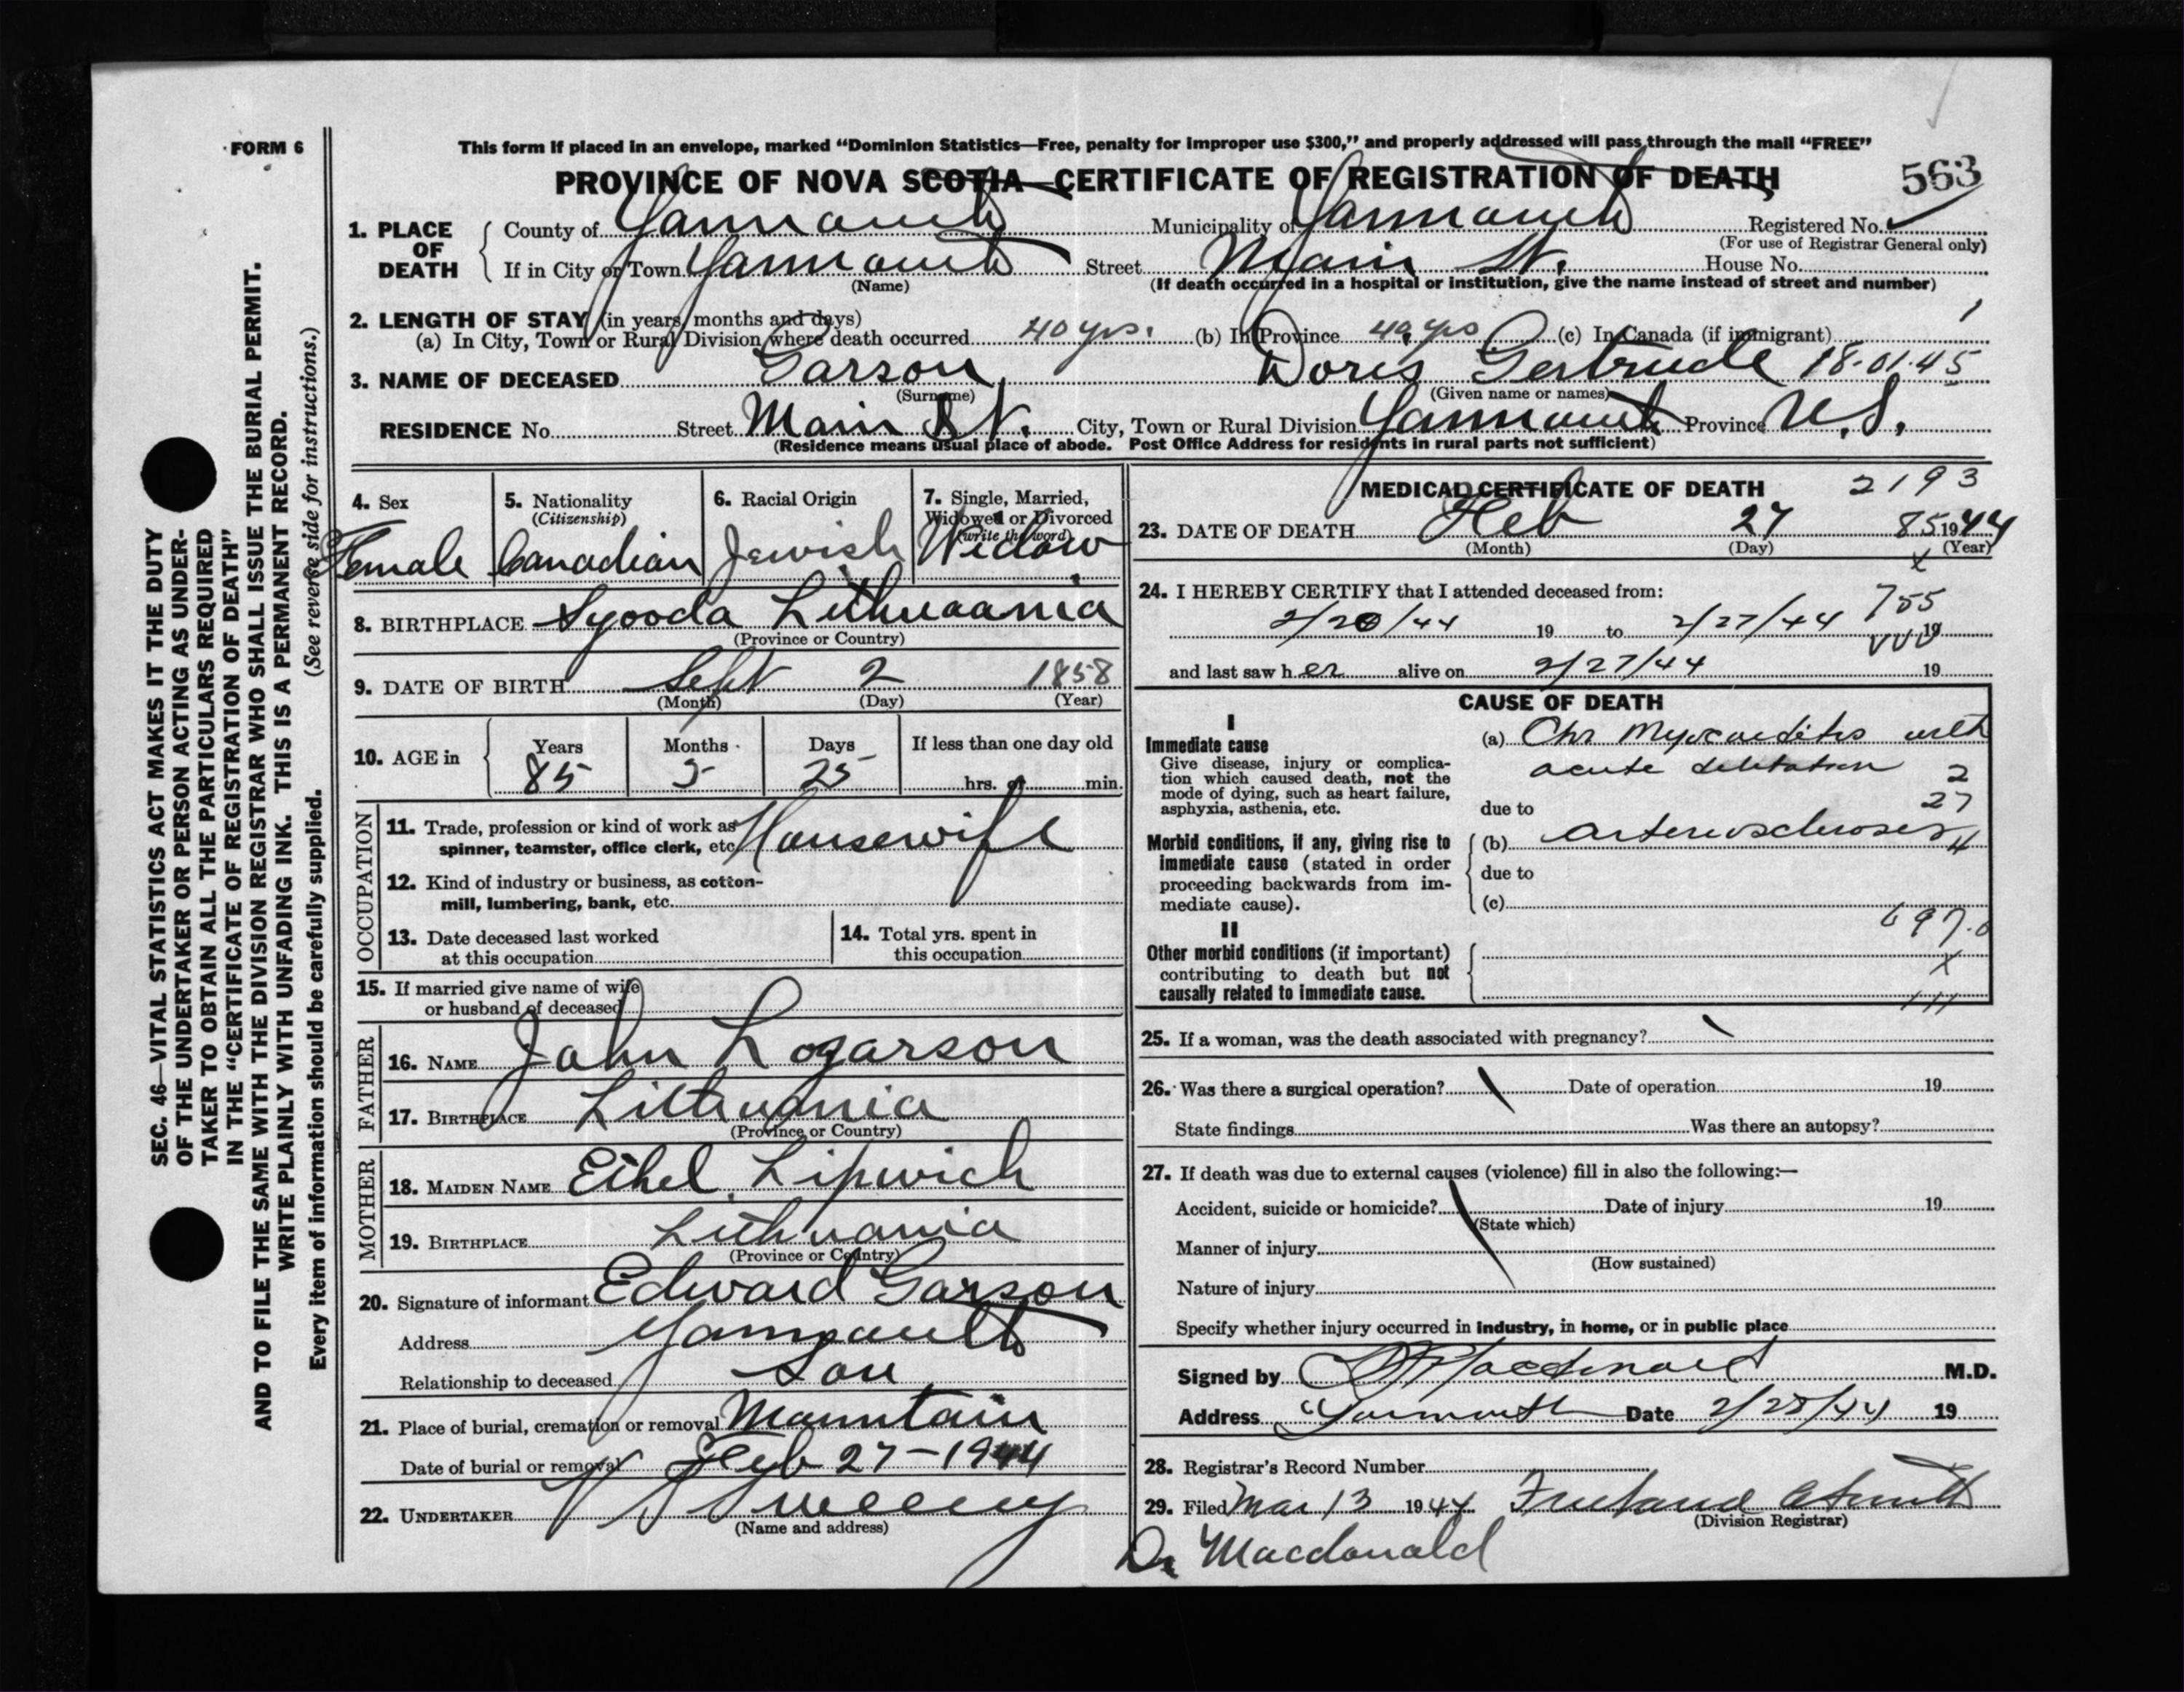 FORM 6
This form if placed in an envelope, marked "Dominion Statistics—Free, penalty for improper use $300," and properly addressed will pass through the mail "FREE"
PROVINCE OF NOVA SCOTIA—CERTIFICATE OF REGISTRATION OF DEATH
563
1. PLACE OF DEATH
County of Yarmouth Municipality of Yarmouth Registered No.
(For use of Registrar General only)
If in City or Town Yarmouth Street Main St. House No.
(Name) (If death occurred in a hospital or institution, give the name instead of street and number)
2. LENGTH OF STAY (in years, months and days)
(a) In City, Town or Rural Division where death occurred 40 yrs. (b) In Province 40 yrs (c) In Canada (if immigrant)
3. NAME OF DECEASED Garson, Doris Gertrude 18-01-45
(Surname) (Given name or names)
RESIDENCE No. Street Main St. City, Town or Rural Division Yarmouth Province N.S.
(Residence means usual place of abode. Post Office Address for residents in rural parts not sufficient)
4. Sex
Female
5. Nationality
(Citizenship)
Canadian
6. Racial Origin
Jewish
7. Single, Married,
Widowed or Divorced
(write the word)
Widow
8. BIRTHPLACE Lithuania
(Province or Country)
9. DATE OF BIRTH Sept 2 1858
(Month) (Day) (Year)
10. AGE in
Years Months Days If less than one day old
85 5 25 hrs. or min.
OCCUPATION
11. Trade, profession or kind of work as
spinner, teamster, office clerk, etc. Housewife
12. Kind of industry or business, as cotton-
mill, lumbering, bank, etc.
13. Date deceased last worked
at this occupation
14. Total yrs. spent in
this occupation
15. If married give name of wife
or husband of deceased
FATHER
16. NAME John Logarson
17. BIRTHPLACE Lithuania
(Province or Country)
MOTHER
18. MAIDEN NAME Ethel Lipwich
19. BIRTHPLACE Lithuania
(Province or Country)
20. Signature of informant Edward Garson
Address Yarmouth
Relationship to deceased Son
21. Place of burial, cremation or removal Mountain
Date of burial or removal Feb 27-1944
22. UNDERTAKER V S Sweeny
(Name and address)
MEDICAL CERTIFICATE OF DEATH 2193
23. DATE OF DEATH Feb 27 85 1944
(Month) (Day) (Year)
x
24. I HEREBY CERTIFY that I attended deceased from:
755
2/20/44 19 to 2/27/44 19
and last saw her alive on 2/27/44 19
CAUSE OF DEATH
I
Immediate cause
Give disease, injury or complica-
tion which caused death, not the
mode of dying, such as heart failure,
asphyxia, asthenia, etc.
(a) Chr Myocarditis with
acute dilitation 2
27
due to
Morbid conditions, if any, giving rise to
immediate cause (stated in order
proceeding backwards from im-
mediate cause).
(b) arteriosclerosis 4
due to
(c)
697.0
II
Other morbid conditions (if important)
contributing to death but not
causally related to immediate cause.
x
111
25. If a woman, was the death associated with pregnancy?
26. Was there a surgical operation? Date of operation 19
State findings Was there an autopsy?
27. If death was due to external causes (violence) fill in also the following:—
Accident, suicide or homicide? Date of injury 19
(State which)
Manner of injury
(How sustained)
Nature of injury
Specify whether injury occurred in industry, in home, or in public place
Signed by Macdonald M.D.
Address Yarmouth Date 2/28/44 19
28. Registrar's Record Number
29. Filed Mar 13 1944
(Division Registrar)
Dr Macdonald
SEC. 46—VITAL STATISTICS ACT MAKES IT THE DUTY
OF THE UNDERTAKER OR PERSON ACTING AS UNDER-
TAKER TO OBTAIN ALL THE PARTICULARS REQUIRED
IN THE "CERTIFICATE OF REGISTRATION OF DEATH"
AND TO FILE THE SAME WITH THE DIVISION REGISTRAR WHO SHALL ISSUE THE BURIAL PERMIT.
WRITE PLAINLY WITH UNFADING INK. THIS IS A PERMANENT RECORD.
Every item of information should be carefully supplied. (See reverse side for instructions.)